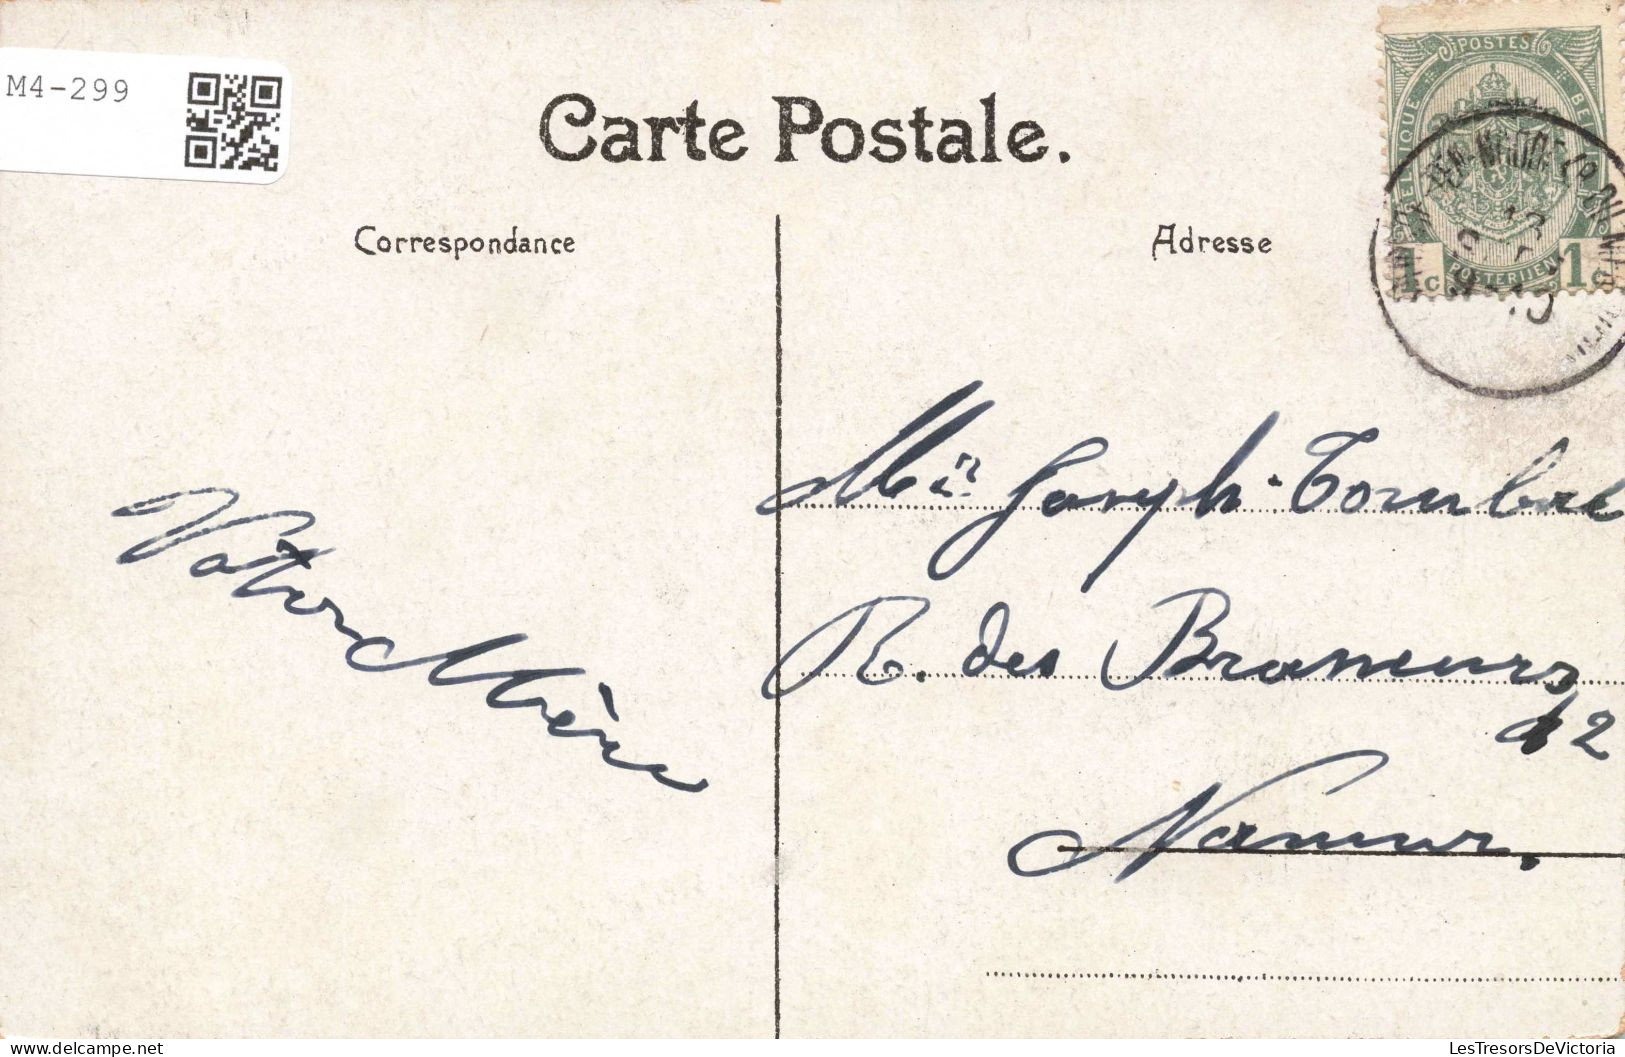 M4-299
Carte Postale.
Correspondance
Adresse
POSTES
BELGIQUE
BELGIË
1c
POSTERIJEN
1c
Votre Mère
Joseph Tombal
R. des Brasseurs
12
Namur.
LesTresorsDeVictoria
www.delcampe.net